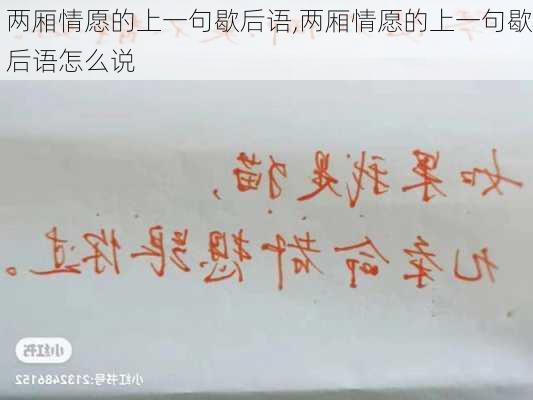 两厢情愿的上一句歇后语,两厢情愿的上一句歇
后语怎么说
如果我是猫,
条命都愿跟你过。
小红书
小红书号:2132486152